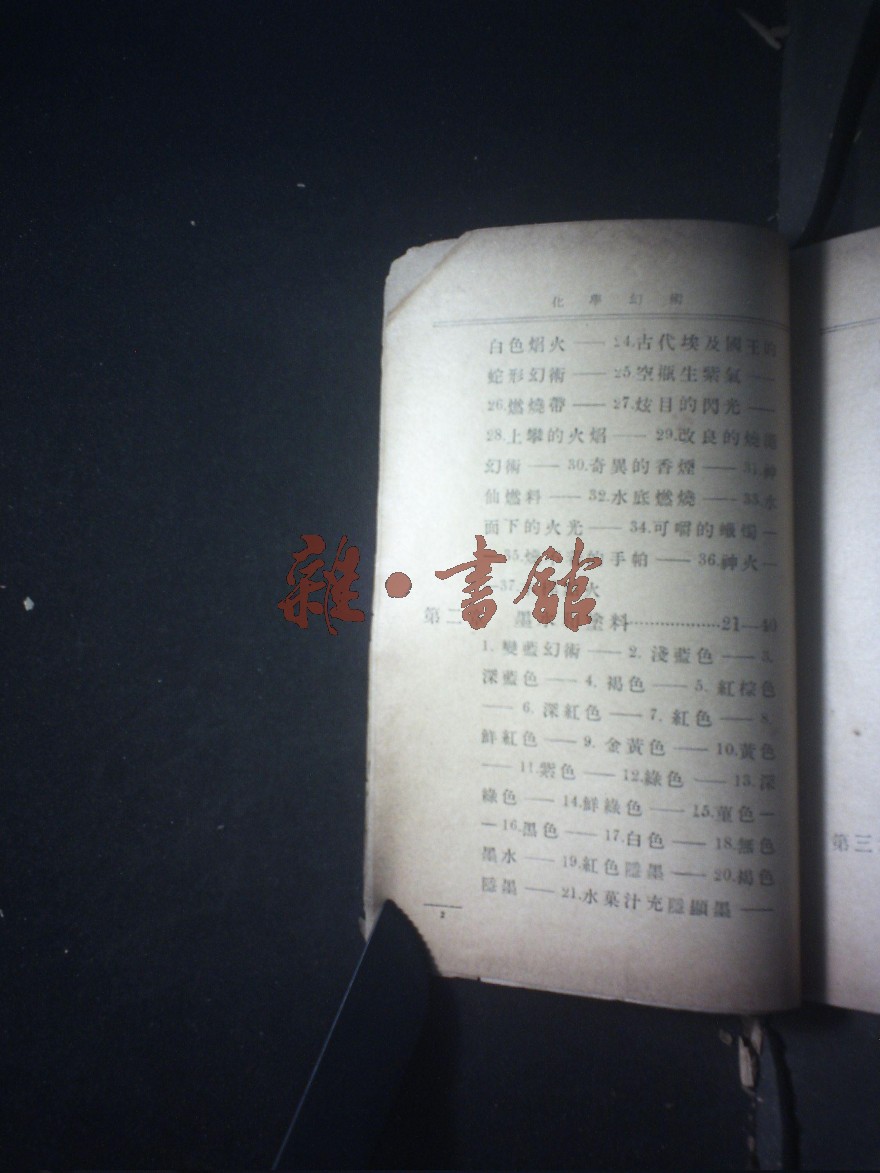 化學幻術
白色焰火——24.古代埃及國王的
蛇形幻術——25.空瓶生紫氣——
26.燃燒帶——27.炫目的閃光——
28.上攀的火焰——29.改良的燒
幻術——30.奇異的香煙——31.神
仙燃料——32.水底燃燒——33.水
面下的火光——34.可嚼的蠟燭—
35.燒 的手帕——36.神火—
—37. 火
第二 墨水 塗料………………21—40
1. 變藍幻術——2. 淺藍色——3.
深藍色——4. 褐色——5. 紅棕色
——6. 深紅色——7. 紅色——8.
鮮紅色——9. 金黃色——10.黃色
——11.紫色——12.綠色——13.深
綠色——14.鮮綠色——15.堇色—
—16.黑色——17.白色——18.無色
墨水——19.紅色隱墨——20.褐色
隱墨——21.水菓汁充隱顯墨——
2
第三
雜·書館